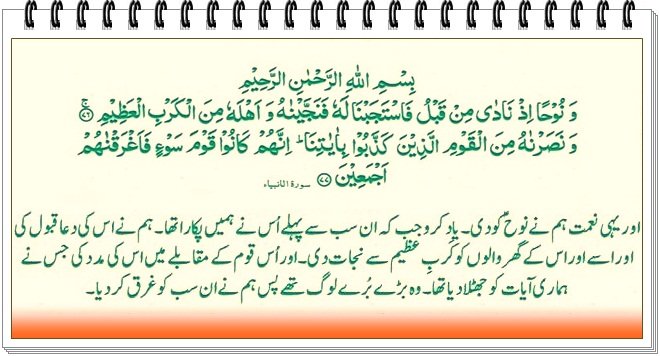 بِسْمِ اللهِ الرَّحْمٰنِ الرَّحِيْمِ
وَ نُوْحًا اِذْ نَادٰى مِنْ قَبْلُ فَاسْتَجَبْنَا لَهٗ فَنَجَّيْنٰهُ وَ اَهْلَهٗ مِنَ الْكَرْبِ الْعَظِيْمِ ۚ﴿۷۶﴾
وَ نَصَرْنٰهُ مِنَ الْقَوْمِ الَّذِيْنَ كَذَّبُوْا بِاٰيٰتِنَا ؕ اِنَّهُمْ كَانُوْا قَوْمَ سَوْءٍ فَاَغْرَقْنٰهُمْ
اَجْمَعِيْنَ ﴿۷۷﴾ سورة الانبیاء
اور یہی نعمت ہم نے نوحؑ کو دی۔ یاد کرو جب کہ ان سب سے پہلے اُس نے ہمیں پکارا تھا۔ ہم نے اس کی دعا قبول کی
اور اسے اور اس کے گھر والوں کو کربِ عظیم سے نجات دی۔ اور اُس قوم کے مقابلے میں اس کی مدد کی جس نے
ہماری آیات کو جھٹلا دیا تھا۔ وہ بڑے بُرے لوگ تھے پس ہم نے ان سب کو غرق کر دیا۔